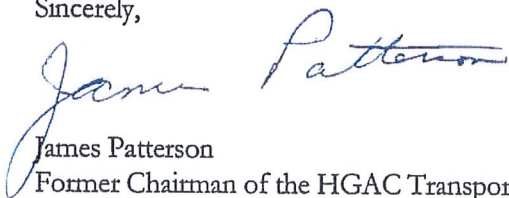 Sincerely,
James Patterson
James Patterson
Former Chairman of the HGAC Transpor